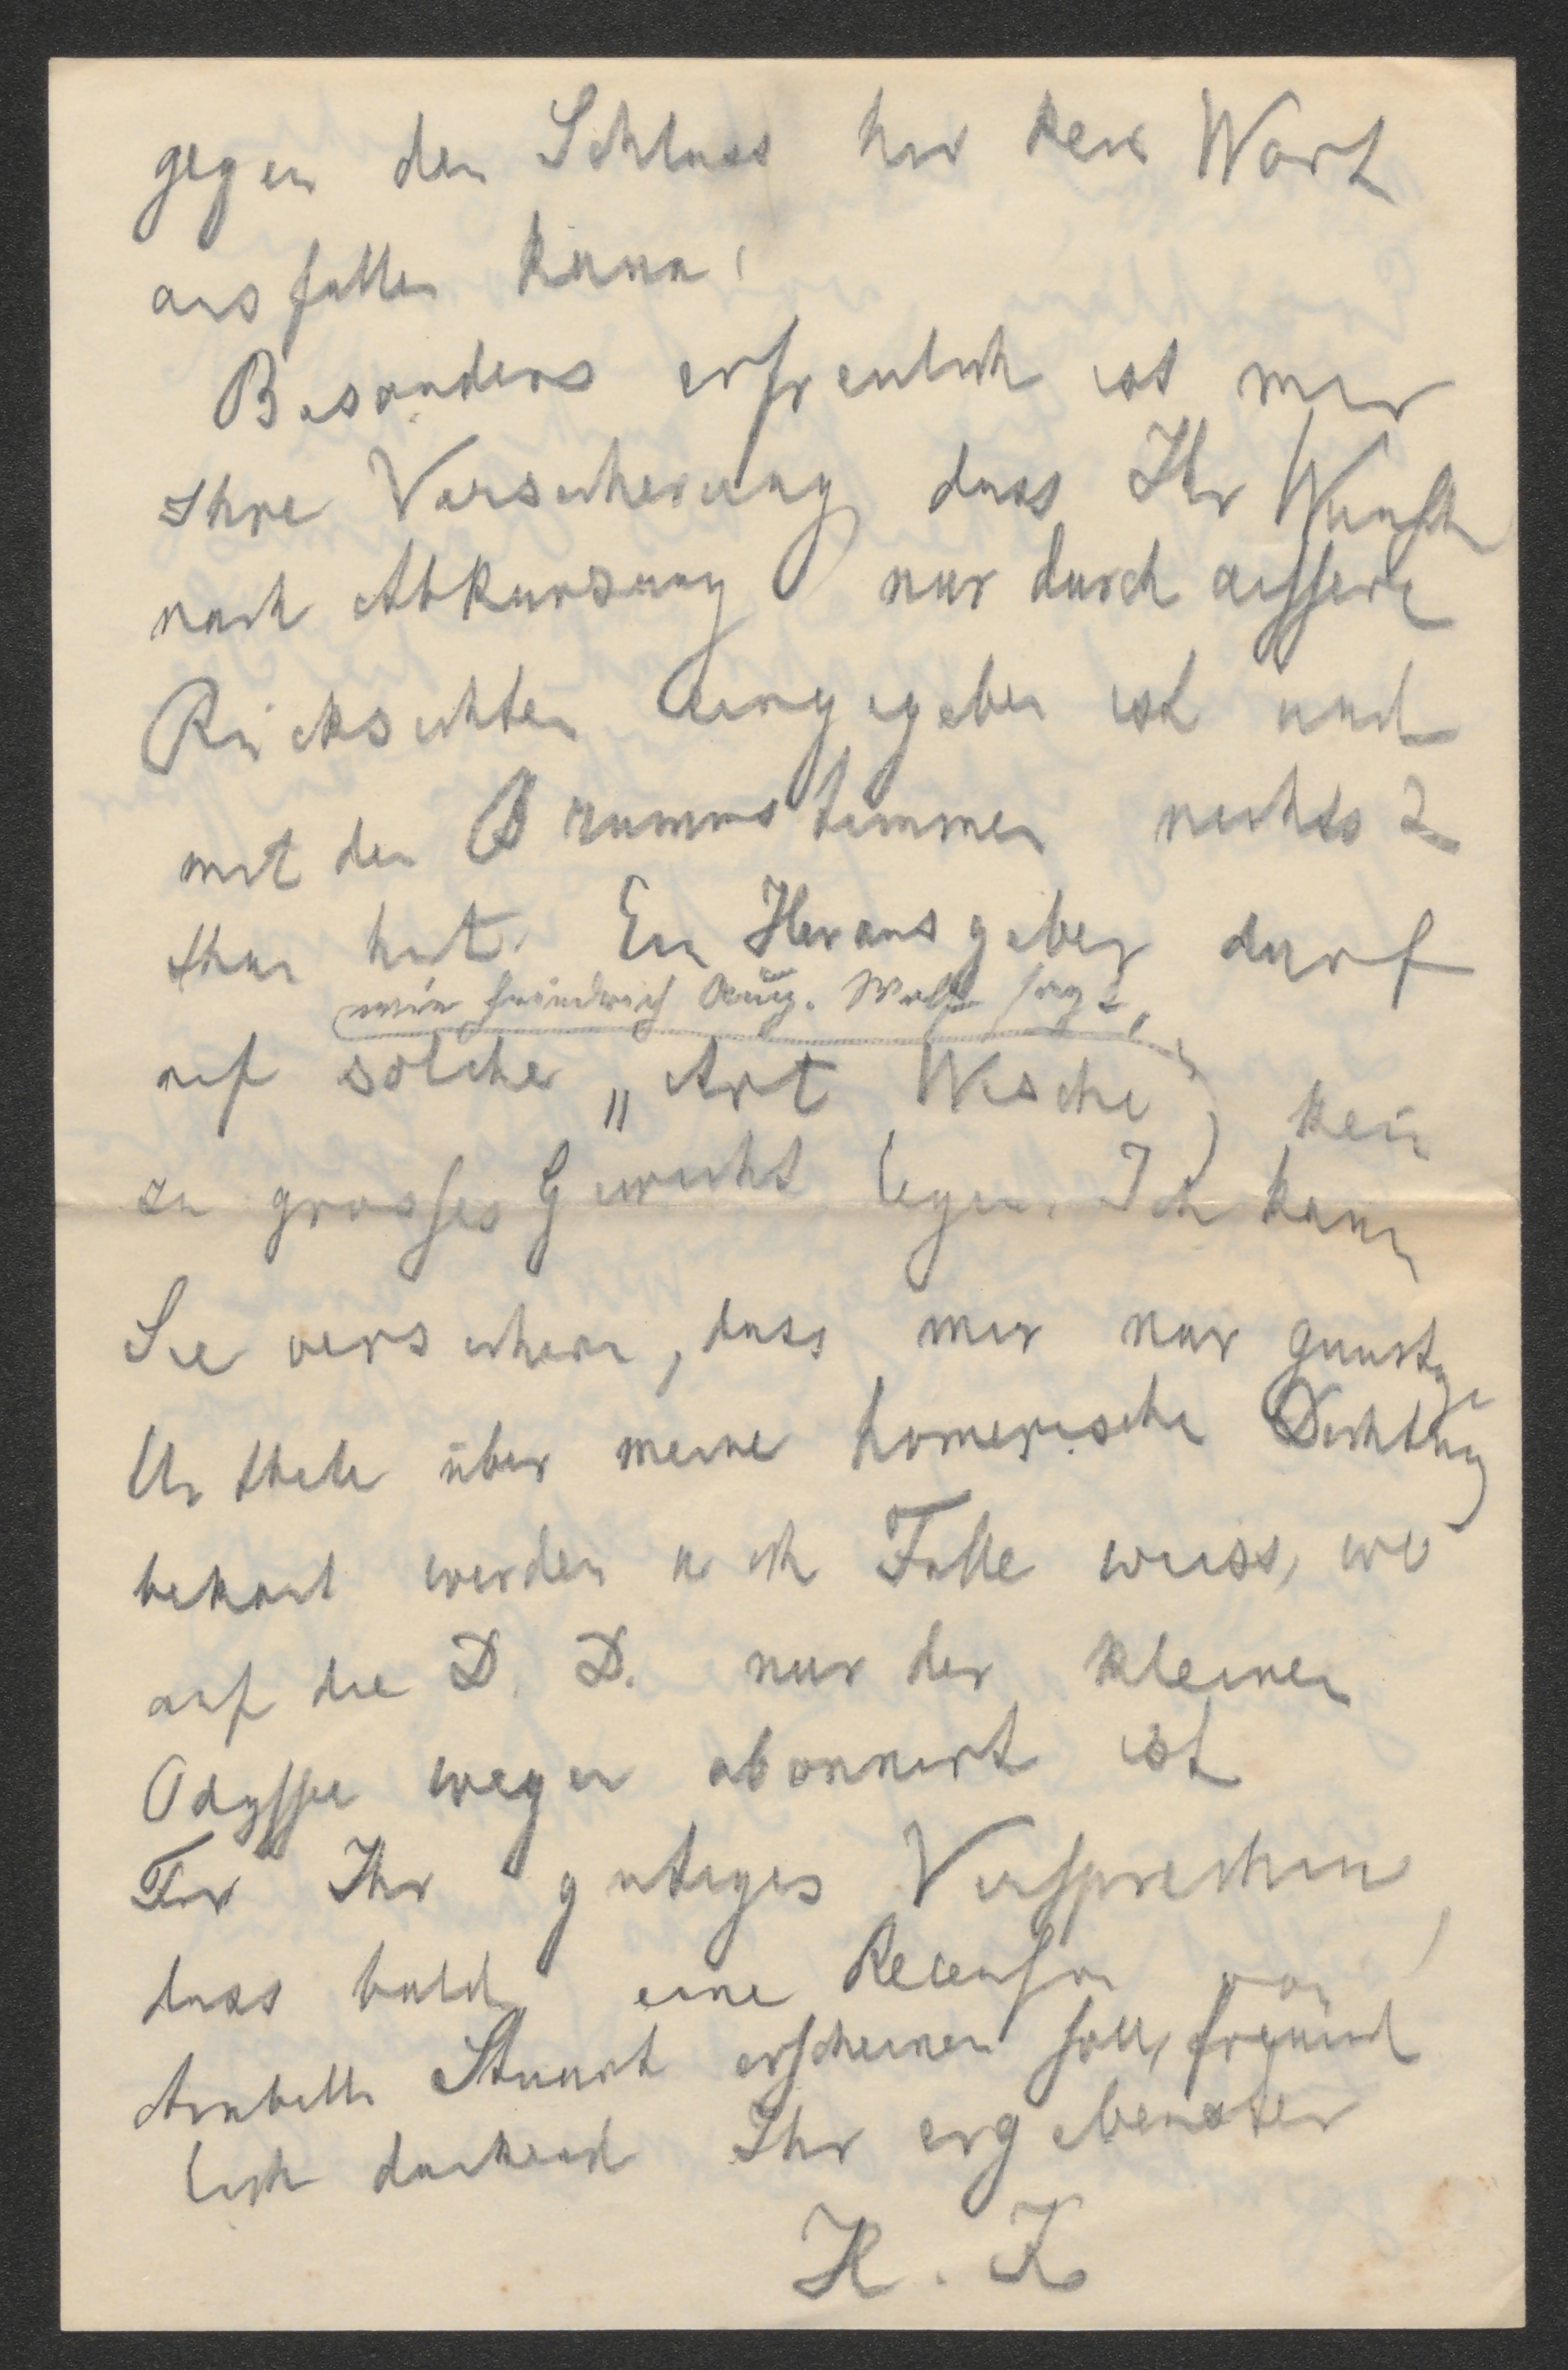 gegen den Schluss hin kein Wort
ausfallen kann.
Besonders erfreulich ist mir
Ihre Versicherung dass Ihr Wunsch
nach Abkürzung nur durch aüssere
Rücksichten eingegeben ist und
mit den Brummstimmen nichts z
thun hat. Ein Herausgeber darf
wie Friedrich Aug. Wolf sagt,
auf solche „Art Wische kein
zu grosses Gewicht legen. Ich kann
Sie versichern, dass mir nur günstige
Urtheile über meine homerische Dichtung
bekant werden u ich Fälle weiss, wo
auf die D. D. nur der kleinen
Odyssee wegen abonnirt ist
Für Ihr gütiges Versprechen,
dass bald eine Recension von
Arabella Stuart erscheinen soll, freund
lich dankend Ihr ergebenster
H. K